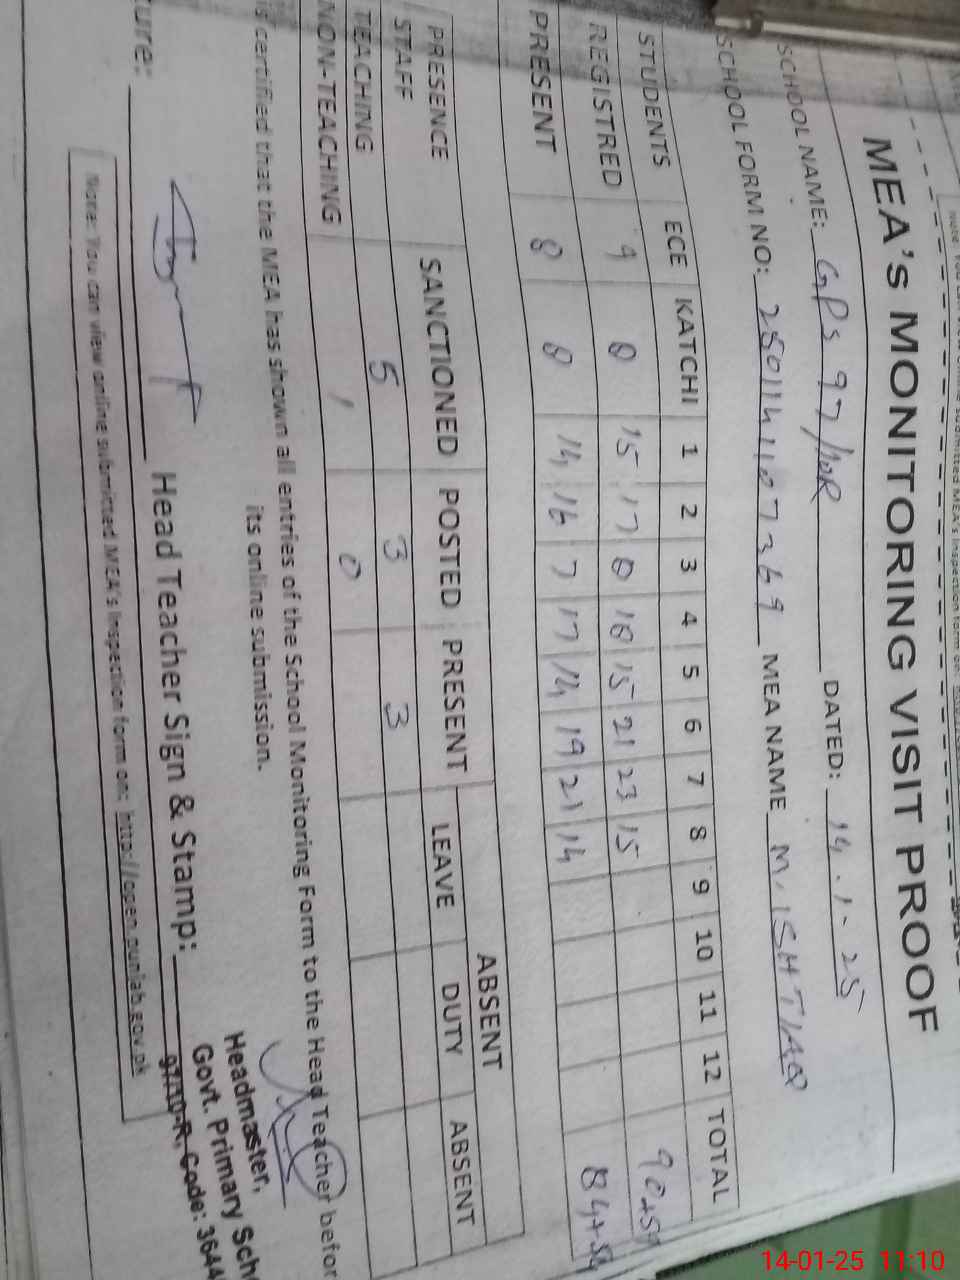 MEA's MONITORING VISIT PROOF
SCHOOL NAME: GPS 97/10R DATED: 14.1-25
SCHOOL FORM NO: MEA NAME M. ISHTIAQ
STUDENTS ECE KATCHI 1 2 3 4 5 6 7 8 9 10 11 12 TOTAL
REGISTRED 9 8 15 17 8 18 15 21 23 15 90+59
PRESENT 8 8 14 16 7 17 14 19 21 14 84+54
PRESENCE SANCTIONED POSTED PRESENT ABSENT
STAFF LEAVE DUTY ABSENT
TEACHING 5 3 3
NON-TEACHING 1 0
is certified that the MEA has shown all entries of the School Monitoring Form to the Head Teacher befor
its online submission.
ture: Head Teacher Sign & Stamp:
Headmaster,
Govt. Primary Sch
97/10-R, Code: 3644
Note: You can view online submitted MEA's inspection form on: http://open.punjab.gov.pk
14-01-25 11:10